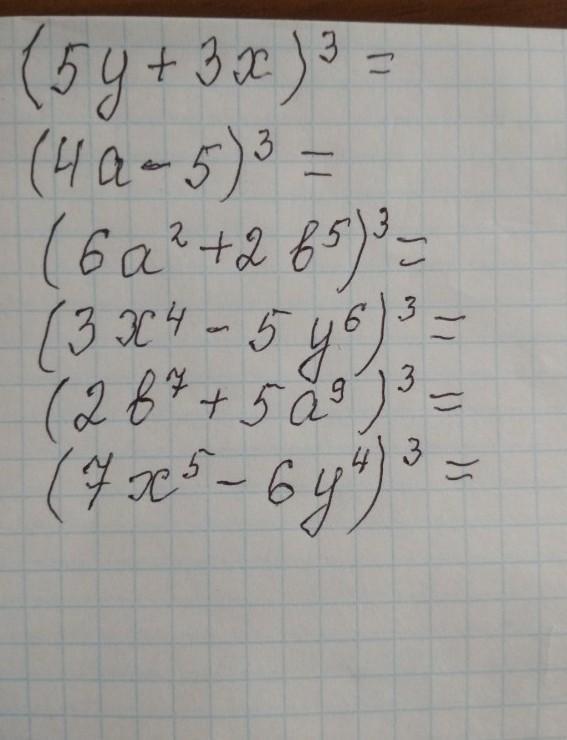 (5y + 3x)³ =
(4a - 5)³ =
(6a² + 2b⁵)³ =
(3x⁴ - 5y⁶)³ =
(2b⁷ + 5a⁹)³ =
(7x⁵ - 6y⁴)³ =